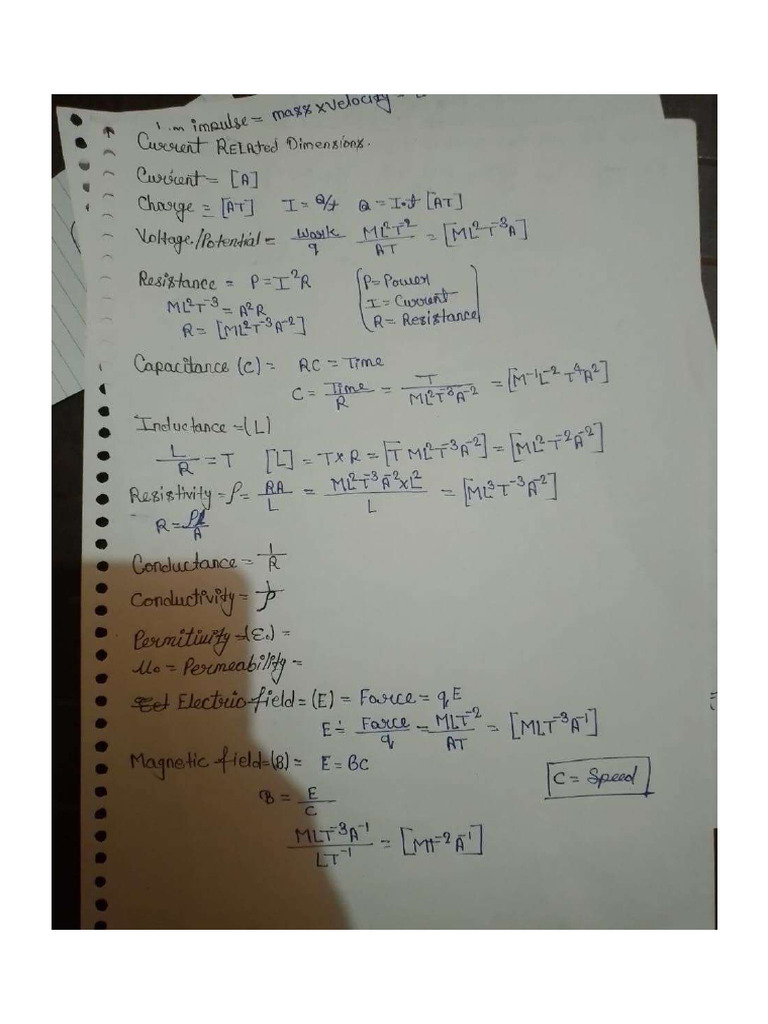 impulse = mass x velocity =
Current RELated Dimensions.
Current = [A]
Charge = [AT] I = Q/t Q = I.t [AT]
Voltage/Potential = Work/q ML²T⁻²/AT = [ML²T⁻³A]
Resistance = P = I²R (P = Power
ML²T⁻³ = A²R I = Current
R = [ML²T⁻³A⁻²] R = Resistance)
Capacitance (C) = RC = Time
C = Time/R = T/ML²T⁻³A⁻² = [M⁻¹L⁻²T⁴A²]
Inductance = (L)
L/R = T [L] = T×R = [T ML²T⁻³A⁻²] = [ML²T⁻²A⁻²]
Resistivity = ρ = RA/L = ML²T⁻³A⁻²×L²/L = [ML³T⁻³A⁻²]
R = ρl/A
Conductance = 1/R
Conductivity = 1/ρ
Permitivity = (ε₀) =
μ₀ = Permeability =
Electric field = (E) = Farce = qE
E = Farce/q = MLT⁻²/AT = [MLT⁻³A⁻¹]
Magnetic field = (B) = E = BC
B = E/C
C = Speed
MLT⁻³A⁻¹/LT⁻¹ = [MT⁻²A⁻¹]